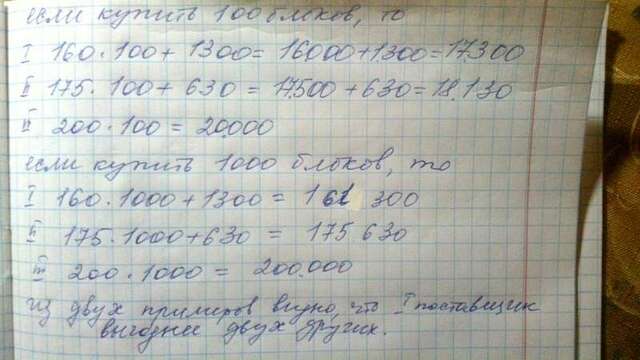 если купить 100 блоков, то
I 160·100+1300=16000+1300=17.300
II 175·100+630=17500+630=18.130
III 200·100=20000
если купить 1000 блоков, то
I 160·1000+1300=161 300
II 175·1000+630=175 630
III 200·1000=200.000
из двух примеров видно, что I поставщик
выгоднее двух других.